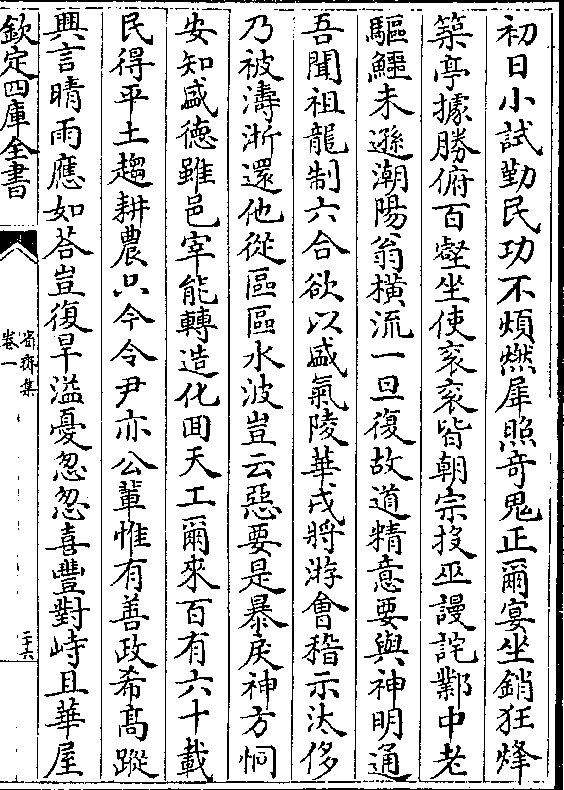 初日小試勤民功不煩燃犀照奇鬼正爾宴坐銷狂烽
築亭據勝俯百壑坐使衮衮皆朝宗投巫謾詫鄴中老
驅鱷未遜潮陽翁橫流一旦復故道精意要與神明通
吾聞祖龍制六合欲以盛氣陵華戎將游㑹稽示汰侈
乃被濤淅還他從區區水波豈云惡要是暴戾神方恫
安知盛德雖邑宰能轉造化囬天工爾來百有六十載
民得平土趨耕農只今令尹亦公輩惟有善政希髙蹤
興言晴雨應如荅豈復旱溢憂忽忽喜豐對峙且華屋
欽定四庫全書
卷一
二十六